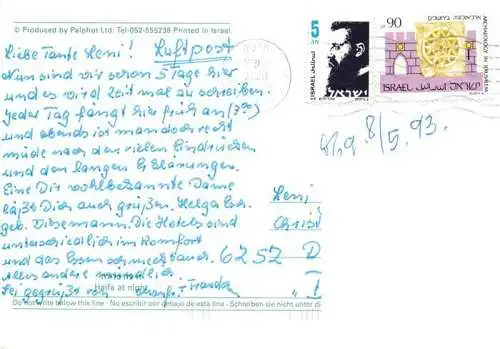 © Produced by Palphot Ltd. Tel-052-555238 Printed in Israel
Liebe Tante Leni! Luftpost
Nun sind wir schon 5 Tage hier
und es wird Zeit mal zu schreiben.
Jeder Tag fängt hier früh an (7°°)
und abends ist man doch recht
müde nach den vielen Eindrücken
und den langen Erklärungen.
Eine Dir wohlbekannte Dame
läßt Dich auch grüßen. Helga
geb. Die Hotels sind
unterschiedlich im Komfort
und das Essen schmeckt auch.
Alles andere mündlich.
Haifa at night
Sei gegrüßt von
Do not write below this line - No escribir por debajo de esta line - Schreiben sie nicht unter di
5
ISRAEL
ישראל
0.90
ארכיאולוגיה בירושלים
ARCHAEOLOGY IN JERUSALEM
ISRAEL ישראל
8/5.93.
Leni
6252 D